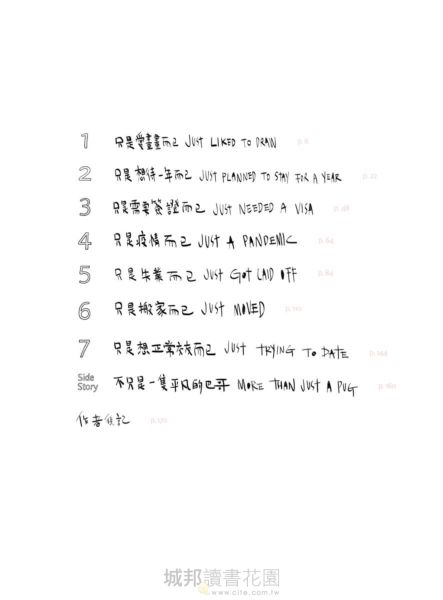 1 只是愛畫畫而已 JUST LIKED TO DRAW p.6
2 只是想待一年而已 JUST PLANNED TO STAY FOR A YEAR p.22
3 只是需要簽證而已 JUST NEEDED A VISA p.48
4 只是疫情而已 JUST A PANDEMIC p.64
5 只是失業而已 JUST GOT LAID OFF p.84
6 只是搬家而已 JUST MOVED
7 只是想正常交友而已 JUST TRYING TO DATE p.144
Side Story 不只是一隻平凡的巴哥 MORE THAN JUST A PUG p.160
作者後記 p.170
城邦讀書花園
www.cite.com.tw